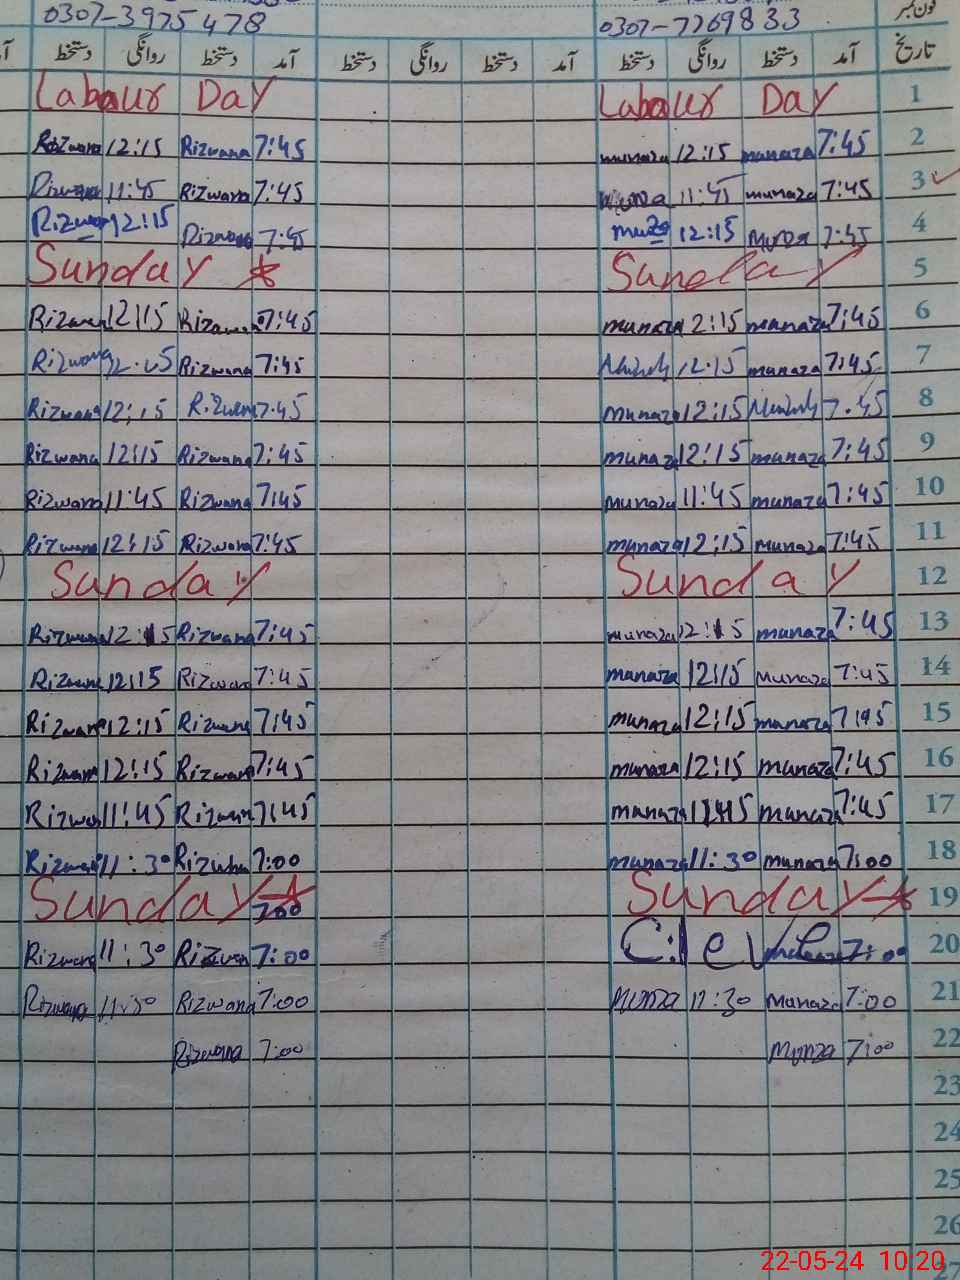 0307-3975478 0307-7769833 فون نمبر
تاریخ آمد دستخط روانگی دستخط آمد دستخط روانگی دستخط آمد دستخط روانگی دستخط
Labour Day Labour Day 1
Rizwana 12:15 Rizwana 7:45 munaza 12:15 munaza 7:45 2
Rizwana 11:45 Rizwana 7:45 Munza 11:45 munaza 7:45 3
Rizwan 12:15 Rizwana 7:45 12:15 Munza 7:45 4
Sunday Sunday 5
Rizwan 12:15 7:45 munaza 12:15 munaza 7:45 6
Rizwana 12:15 Rizwana 7:45 12:15 munaza 7:45 7
Rizwana 12:15 Rizwan 7:45 munaza 12:15 7:45 8
Rizwana 12:15 Rizwana 7:45 munaza 12:15 munaza 7:45 9
Rizwana 11:45 Rizwana 7:45 munaza 11:45 munaza 7:45 10
Rizwana 12:15 Rizwana 7:45 munaza 12:15 munaza 7:45 11
Sunday Sunday 12
Rizwana 12:15 Rizwana 7:45 munaza 12:15 munaza 7:45 13
Rizwana 12:15 Rizwana 7:45 manaza 12:15 Munaza 7:45 14
Rizwana 12:15 Rizwana 7:45 munaza 12:15 manaza 7:45 15
Rizwana 12:15 Rizwana 7:45 munaza 12:15 munaza 7:45 16
Rizwa 11:45 Rizwan 7:45 manaza 11:45 manaza 7:45 17
Rizwan 11:30 7:00 munaza 11:30 munaza 7:00 18
Sunday 700 Sunday 19
Rizwana 11:30 Rizwan 7:00 C:leV 7:00 20
Rizwana 11:30 Rizwana 7:00 Munza 11:30 Munaza 7:00 21
Rizwana 7:00 Munza 7:00 22
23
24
25
26
27
22-05-24 10:20